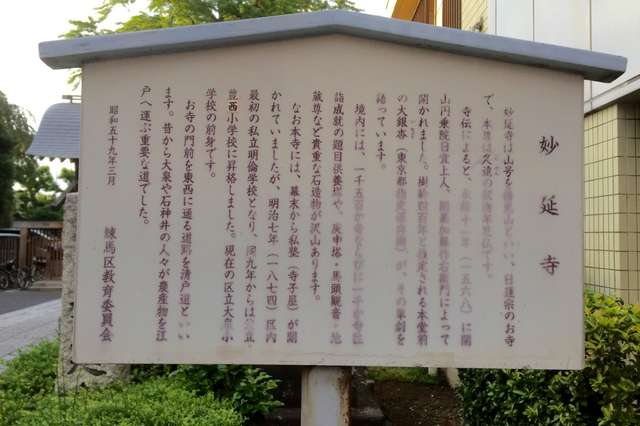 妙延寺
妙延寺は山号を倍光山といい、日蓮宗のお寺
で、本尊は久遠の釈迦牟尼仏です。
寺伝によると、永禄十一年（一五六八）に開
山円乗院日宣上人、開基加藤作右衛門によって
開かれました。樹齢四百年と推定される本堂前
の大銀杏（東京都指定保存樹）が、その草創を
語っています。
境内には、一千五百か寺ならびに一千か寺社
詣成就の題目供養塔や、庚申塔・馬頭観音・地
蔵尊など貴重な石造物が沢山あります。
なお本寺には、幕末から私塾（寺子屋）が開
かれていましたが、明治七年（一八七四）区内
最初の私立明倫学校となり、同九年からは公立
豊西小学校に昇格しました。現在の区立大泉小
学校の前身です。
お寺の門前を東西に通る道路を清戸道といい
ます。昔から大泉や石神井の人々が農産物を江
戸へ運ぶ重要な道でした。
昭和五十九年三月
練馬区教育委員会